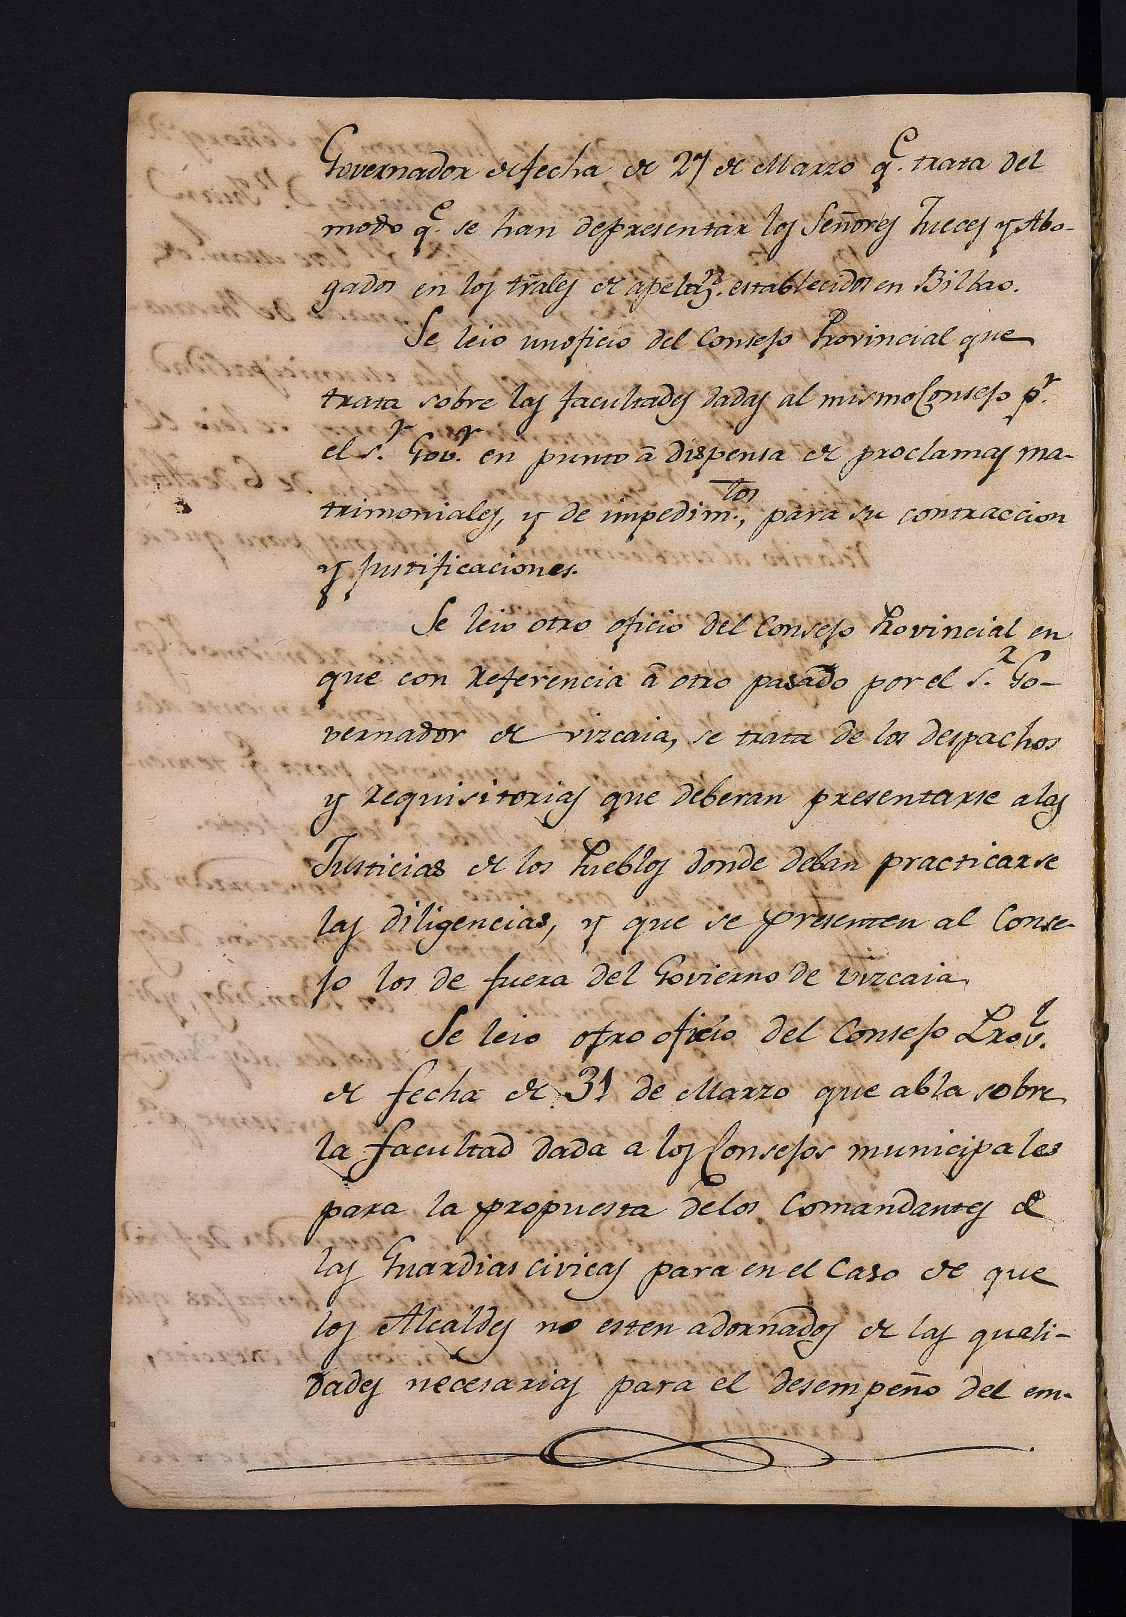 Governador de fecha de 27 de Marzo q.e trata del
modo q.e se han de presentar los Señores Jueces y Abo-
gados en los trãles de apelaz.n establecidos en Bilbao.
Se leio un oficio del Consejo Provincial que
trata sobre las facultades dadas al mismo Consejo p.r
el S.r Gov.r en punto ā dispensa de proclamas ma-
trimoniales, y de impedim.tos, para su contraccion
y justificaciones.
Se leio otro oficio del Consejo Provincial en
que con referencia ā otro pasado por el S.r Go-
vernador de vizcaia, se trata de los despachos
y requisitorias que deberan presentarse a las
Justicias de los Pueblos donde deban practicarse
las diligencias, y que se presenten al Conse-
jo los de fuera del Govierno de vizcaia
Se leio otro oficio del Consejo Prov.l
de fecha de 31 de Marzo que abla sobre
la facultad dada a los Consejos municipales
para la propuesta de los Comandantes de
las Guardias civicas para en el caso de que
los Alcaldes no esten adornados de las quali-
dades necesarias para el desempeño del em-